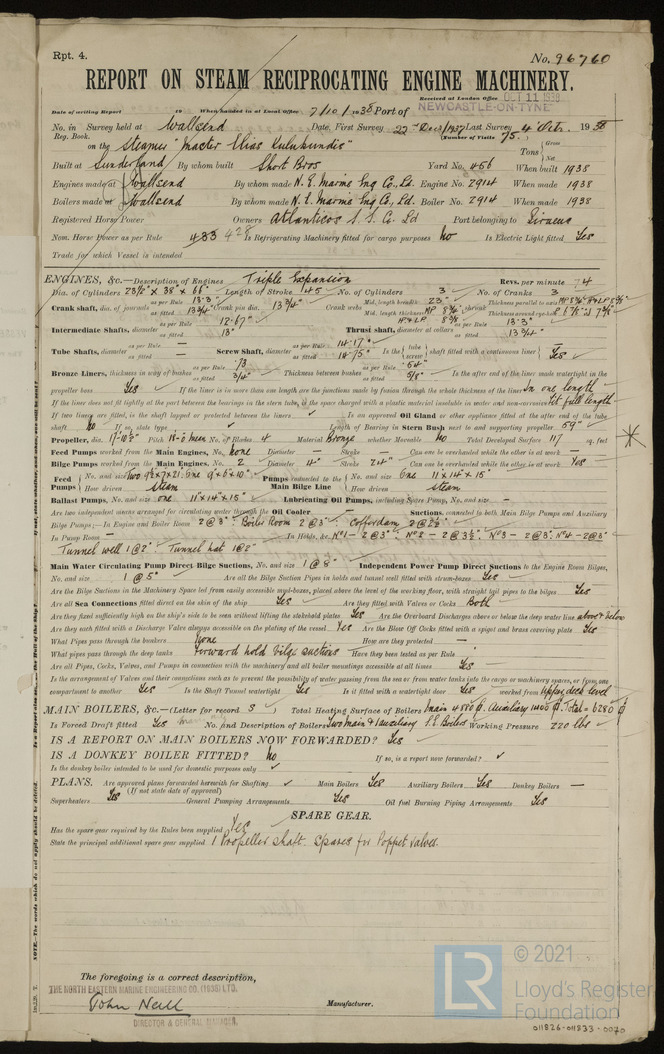 Rpt. 4.
No. 96760
REPORT ON STEAM RECIPROCATING ENGINE MACHINERY.
Received at London Office OCT 11 1938
Date of writing Report 19 When handed in at Local Office 7/10/1938 Port of NEWCASTLE-ON-TYNE
No. in Survey held at Wallsend Date, First Survey 22nd Decr/1937 Last Survey 4 Octr. 1938
Reg. Book. (Number of Visits 75.)
on the Steamer "Master Elias Kulukundis" Tons { Gross Net
Built at Sunderland By whom built Short Bros Yard No. 456 When built 1938
Engines made at Wallsend By whom made N. E. Marine Eng Co. Ld. Engine No. 2914 When made 1938
Boilers made at Wallsend By whom made N. E. Marine Eng Co. Ld. Boiler No. 2914 When made 1938
Registered Horse Power Owners Atlanticos S. S. Co. Ld Port belonging to Piraeus
Nom. Horse Power as per Rule 433 428 Is Refrigerating Machinery fitted for cargo purposes No Is Electric Light fitted Yes
Trade for which Vessel is intended
ENGINES, &c.—Description of Engines Triple Expansion Revs. per minute 74
Dia. of Cylinders 23½" x 38" x 66" Length of Stroke 45" No. of Cylinders 3 No. of Cranks 3
Crank shaft, dia. of journals as per Rule 13.3" as fitted 13¾" Crank pin dia. 13¾" Crank webs Mid. length breadth 23" Thickness parallel to axis
Intermediate Shafts, diameter as per Rule 12.67" as fitted 13" Thrust shaft, diameter at collars as per Rule 13.3" as fitted 13¾"
Tube Shafts, diameter as per Rule — as fitted — Screw Shaft, diameter as per Rule 14.17" as fitted 14.75" Is the { tube screw } shaft fitted with a continuous liner { — Yes
Bronze Liners, thickness in way of bushes as per Rule .73 as fitted 3/4" Thickness between bushes as per Rule .54" as fitted 5/8" Is the after end of the liner made watertight in the
propeller boss Yes If the liner is in more than one length are the junctions made by fusion through the whole thickness of the liner In one length
If the liner does not fit tightly at the part between the bearings in the stern tube, is the space charged with a plastic material insoluble in water and non-corrosive Fit full length
If two liners are fitted, is the shaft lapped or protected between the liners ✓ Is an approved Oil Gland or other appliance fitted at the after end of the tube
shaft No If so, state type ✓ Length of Bearing in Stern Bush next to and supporting propeller 59"
Propeller, dia. 17'-10½" Pitch No. of Blades 4 Material Bronze whether Moveable No Total Developed Surface 117 sq. feet
Feed Pumps worked from the Main Engines, No. None Diameter — Stroke — Can one be overhauled while the other is at work —
Bilge Pumps worked from the Main Engines, No. 2 Diameter 4" Stroke 24" Can one be overhauled while the other is at work Yes
Feed Pumps { No. and size Two 9½x7x21. One 9"x6"x10" How driven Steam Pumps connected to the Main Bilge Line { No. and size One 11"x14"x15" How driven Steam
Ballast Pumps, No. and size one 11"x14"x15" Lubricating Oil Pumps, including Spare Pump, No. and size —
Are two independent means arranged for circulating water through the Oil Cooler — Suctions, connected to both Main Bilge Pumps and Auxiliary
Bilge Pumps;—In Engine and Boiler Room 2@3": Boiler Room 2@3": Cofferdam 2@2½"
In Pump Room — In Holds, &c. No 1 - 2@3": No 2 - 2@3½": No 3 - 2@3": No 4 - 2@3"
Tunnel well 1@2": Tunnel hat 1@2"
Main Water Circulating Pump Direct Bilge Suctions, No. and size 1@8" Independent Power Pump Direct Suctions to the Engine Room Bilges,
No. and size 1@5" Are all the Bilge Suction Pipes in holds and tunnel well fitted with strum-boxes Yes
Are the Bilge Suctions in the Machinery Space led from easily accessible mud-boxes, placed above the level of the working floor, with straight tail pipes to the bilges Yes
Are all Sea Connections fitted direct on the skin of the ship Yes Are they fitted with Valves or Cocks Both
Are they fixed sufficiently high on the ship's side to be seen without lifting the stokehold plates Yes Are the Overboard Discharges above or below the deep water line above & below
Are they each fitted with a Discharge Valve always accessible on the plating of the vessel Yes Are the Blow Off Cocks fitted with a spigot and brass covering plate Yes
What Pipes pass through the bunkers None How are they protected —
What pipes pass through the deep tanks Forward hold bilge suctions Have they been tested as per Rule
Are all Pipes, Cocks, Valves, and Pumps in connection with the machinery and all boiler mountings accessible at all times Yes
Is the arrangement of Valves and their connections such as to prevent the possibility of water passing from the sea or from water tanks into the cargo or machinery spaces, or from one
compartment to another Yes Is the Shaft Tunnel watertight Yes Is it fitted with a watertight door Yes worked from Upper deck level
MAIN BOILERS, &c.—(Letter for record S) Total Heating Surface of Boilers Auxiliary Total = 6280
Is Forced Draft fitted Yes No. and Description of Boilers Two main & 1 auxiliary S.E. Boilers Working Pressure 220 lbs
IS A REPORT ON MAIN BOILERS NOW FORWARDED? Yes
IS A DONKEY BOILER FITTED? No If so, is a report now forwarded? ✓
Is the donkey boiler intended to be used for domestic purposes only ✓
PLANS. Are approved plans forwarded herewith for Shafting ✓ Main Boilers Yes Auxiliary Boilers Yes Donkey Boilers —
(If not state date of approval)
Superheaters Yes General Pumping Arrangements Yes Oil fuel Burning Piping Arrangements Yes
SPARE GEAR.
Has the spare gear required by the Rules been supplied Yes
State the principal additional spare gear supplied 1 Propeller shaft. Spares for Poppet valves.
The foregoing is a correct description,
THE NORTH EASTERN MARINE ENGINEERING CO. (1938) LTD.
John Neill Manufacturer.
DIRECTOR & GENERAL MANAGER.
NOTE.—The words which do not apply should be deleted.
© 2021
LR
Lloyd's Register
Foundation
011826-011833-0070